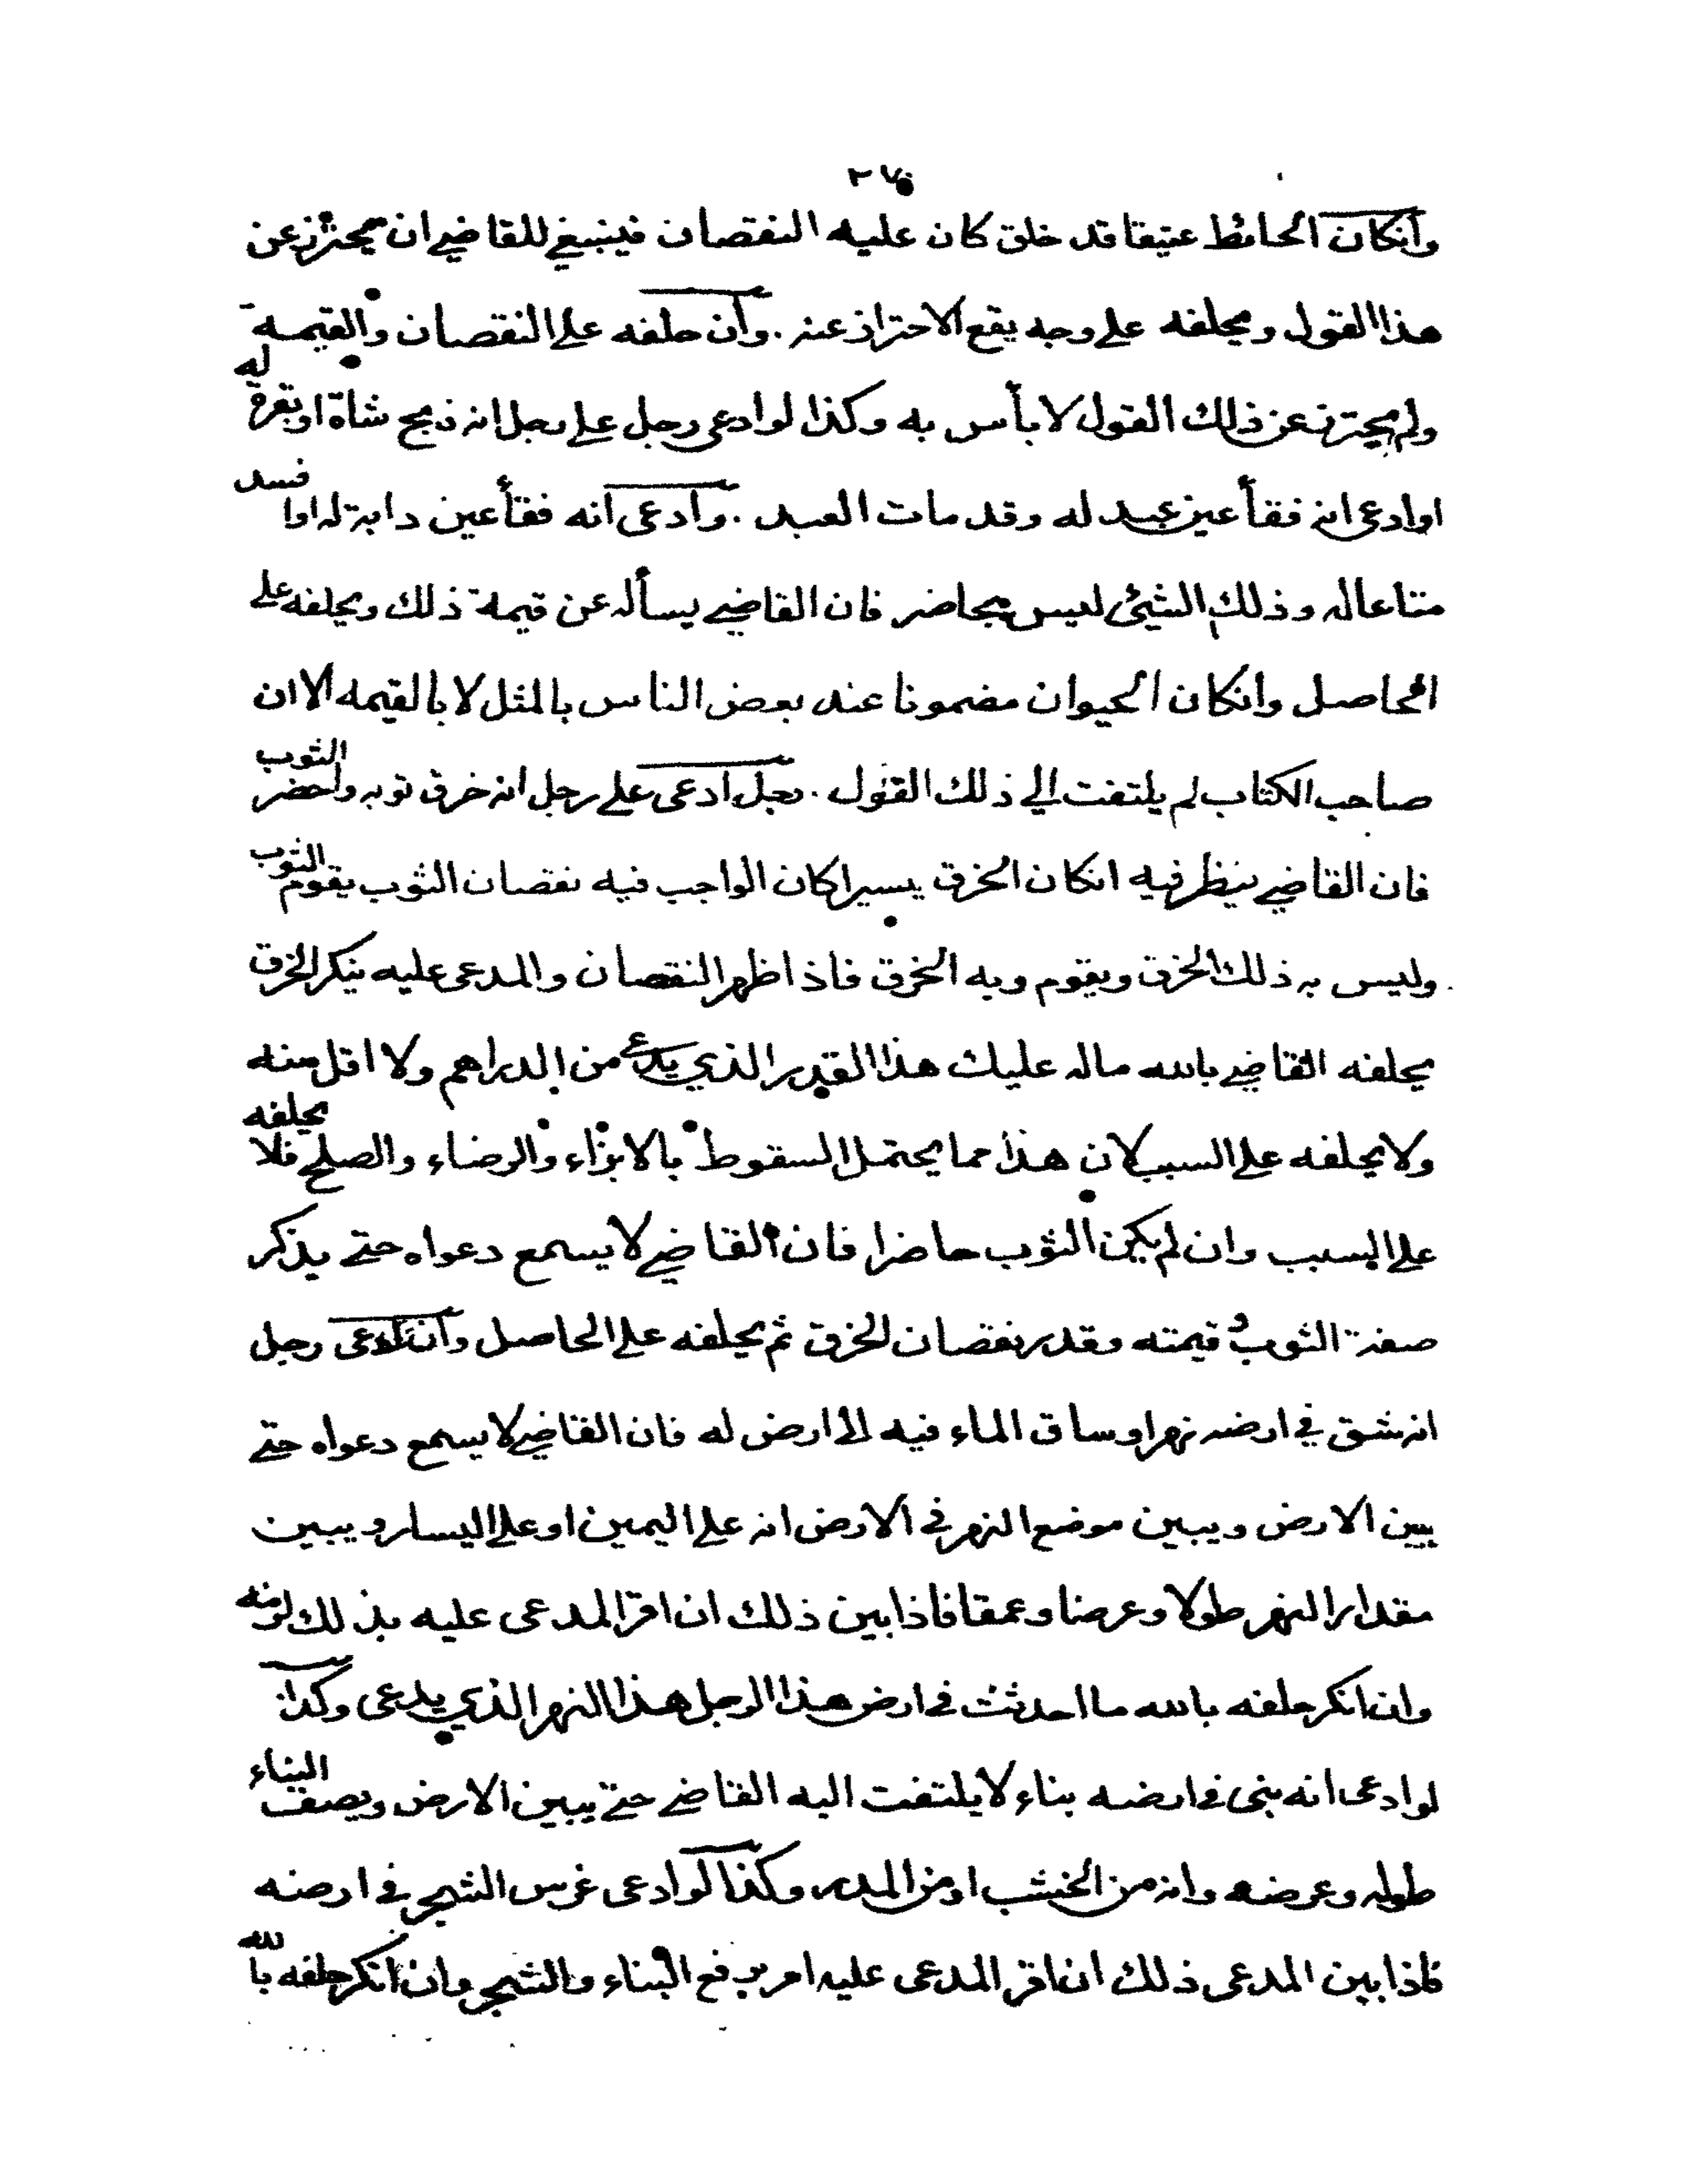 وانكان الحائط عتيقا قد خلق كان عليه النقصان فينبغي للقاضي ان يحترز عن
هذا القول ويحلفه على وجه يقع الاحتراز عنه . وان حلفه على النقصان والقيمة
ولم يحترز عن ذلك القول لا بأس به وكذا لو ادعى رجل على رجل انه ذبح شاة او بقرة له
او ادعى انه فقأ عين عبد له وقد مات العبد . وادعى انه فقأ عين دابة له او افسد
متاعا له وذلك الشيئ ليس بحاضر فان القاضي يسأله عن قيمة ذلك ويحلفه على
الحاصل وانكان الحيوان مضمونا عند بعض الناس بالمثل لا بالقيمه الا ان
صاحب الكتاب لم يلتفت الي ذلك القول . رجل ادعى على رجل انه خرق ثوبه واحضر الثوب
فان القاضي ينظر فيه انكان الخرق يسيرا كان الواجب فيه نقصان الثوب يقوم الثوب
وليس به ذلك الخرق ويقوم وبه الخرق فاذا ظهر النقصان والمدعى عليه ينكر الخرق
يحلفه القاضي بالله ماله عليك هذا القدر الذي يدعى من الدراهم ولا اقل منه
ولا يحلفه على السبب لان هذا مما يحتمل السقوط بالابراء والرضاء والصلح فلا يحلفه
على السبب وان لم يكن الثوب حاضرا فان القاضي لا يسمع دعواه حتى يذكر
صفة الثوب و قيمته وقدر نقصان الخرق ثم يحلفه على الحاصل وان ادعى رجل
انه شق في ارضه نهرا وساق الماء فيه الى ارض له فان القاضي لا يسمع دعواه حتى
يبين الارض ويبين موضع النهر في الارض انه على اليمين او على اليسار ويبين
مقدار النهر طولا وعرضا وعمقا فاذا بين ذلك ان اقر المدعى عليه بذلك لزمه
وان انكر حلفه بالله ما احدثت في ارض هذا الرجل هذا النهر الذي يدعى وكذا
لو ادعى انه بنى في ارضه بناء لا يلتفت اليه القاضي حتى يبين الارض ويصف البناء
طوله وعرضه وانه من الخشب او من المدر وكذا لو ادعى غرس الشجر في ارضه
فاذا بين المدعى ذلك ان اقر المدعى عليه امر برفع البناء والشجر وان انكر حلفه بالله